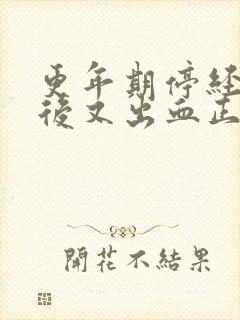 更年期停經
後又出血正
開花不結果